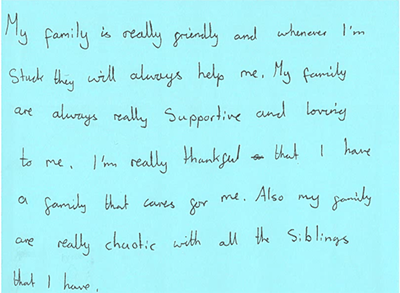 My family is really friendly and whenever I'm
Stuck they will always help me. My family
are always really Supportive and loving
to me. I'm really thankful that I have
a family that cares for me. Also my family
are really chaotic with all the Siblings
that I have.